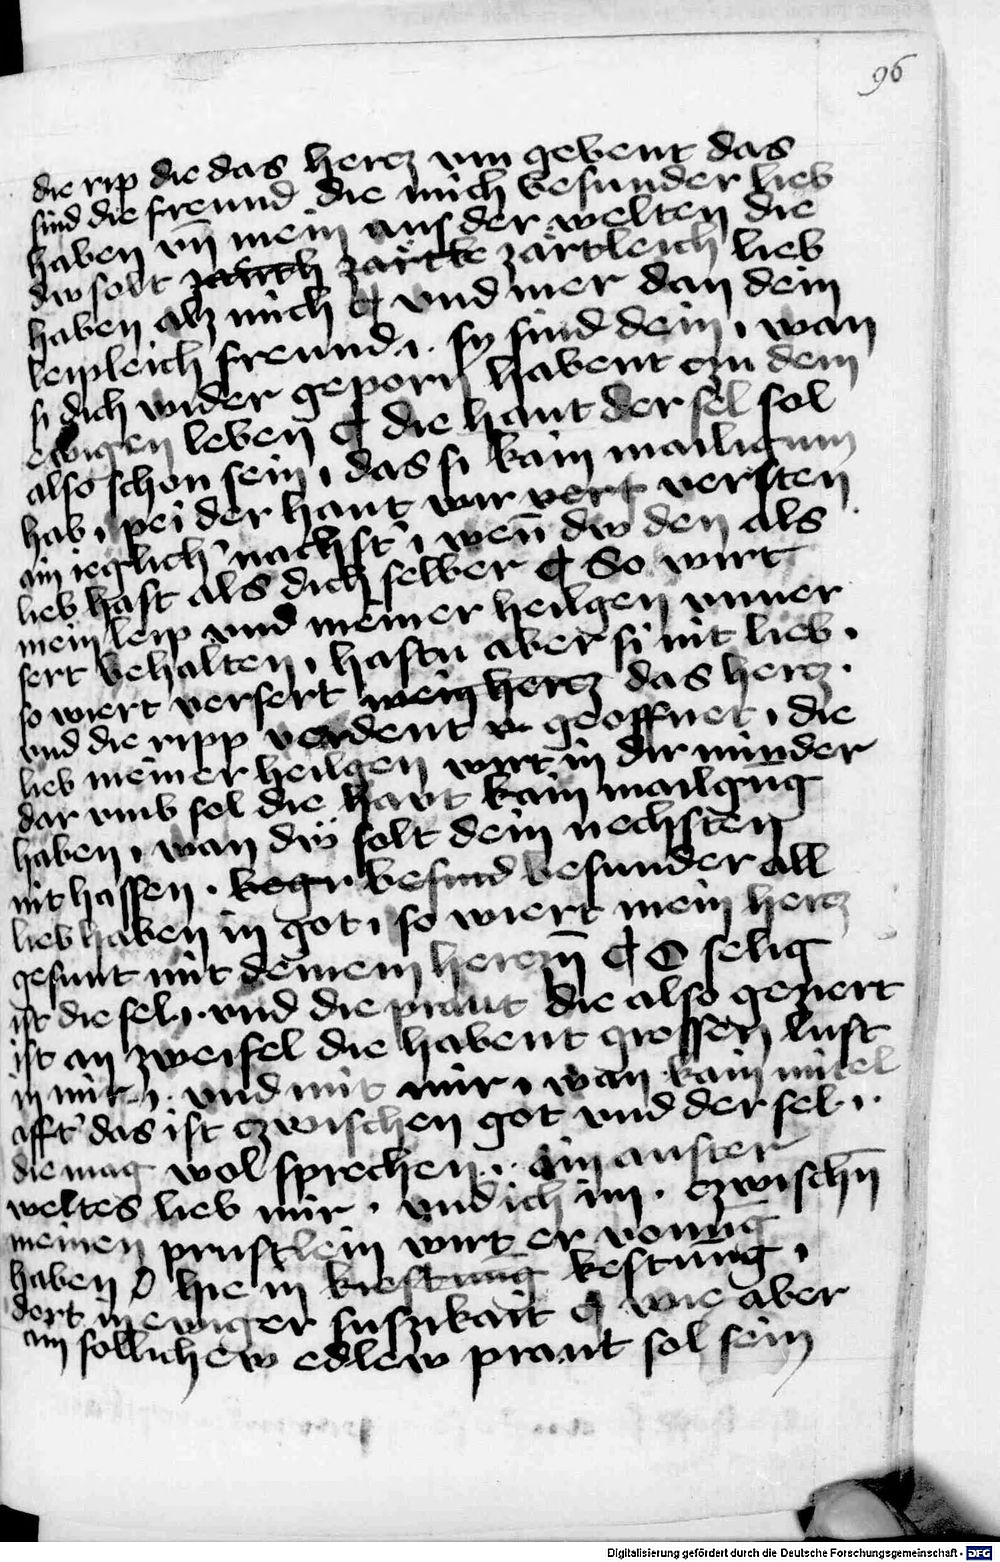 96
die rip die das hercz vm gebent das
sind die freund die mich besunder lieb
haben vn̄ mein aus der welten die
dw solt zärtleich lieb
haben alz mich ¶ vnd mer dan dein
leipleich freund ı. sy sind dein ı wan
si dich wider geporn habent czu dem
ewigen leben ¶ die haut der sel sol
also schon sein ı das si kain mailigum
hab ı pei der haut wir vert versten
ain ieglich' nachst' ı wen̄ dw den als
lieb hast als dich selber ¶ So wirt
mein leip vnd meiner heilgen vnuer
sert behalten ı hastu aber si nit lieb ı
so wiert versert mein hercz das hercz .
vnd die ripp werdent geoffnet ı die
lieb meiner heilgen wirt in dir minder
dar vmb sol die haut kain mailgūg
haben ı wan dw̎ solt dein nechsten
nit hassen . besund besunder all
lieb haben in got ı so wiert mein hercz
gesunt mit deinem herczn̄ ¶ O selig
ist die sel ı. vnd die praut die also geziert
ist an zweifel die habent grossen lust
in mir ı. vnd mit mir ı wan kain mitel
afft' das ist czwischen got vnd der sel ı.
die mag wol sprechen ı. ain auster
weltes lieb mir . vnd ich im . czwischn̄
meinen prustlein wirt er wonūg
haben hie in kiestung kestung ı
dort in ewiger suszikait ¶ wie aber
ain sollichew edlew praut sol sein
Digitalisierung gefördert durch die Deutsche Forschungsgemeinschaft - DFG